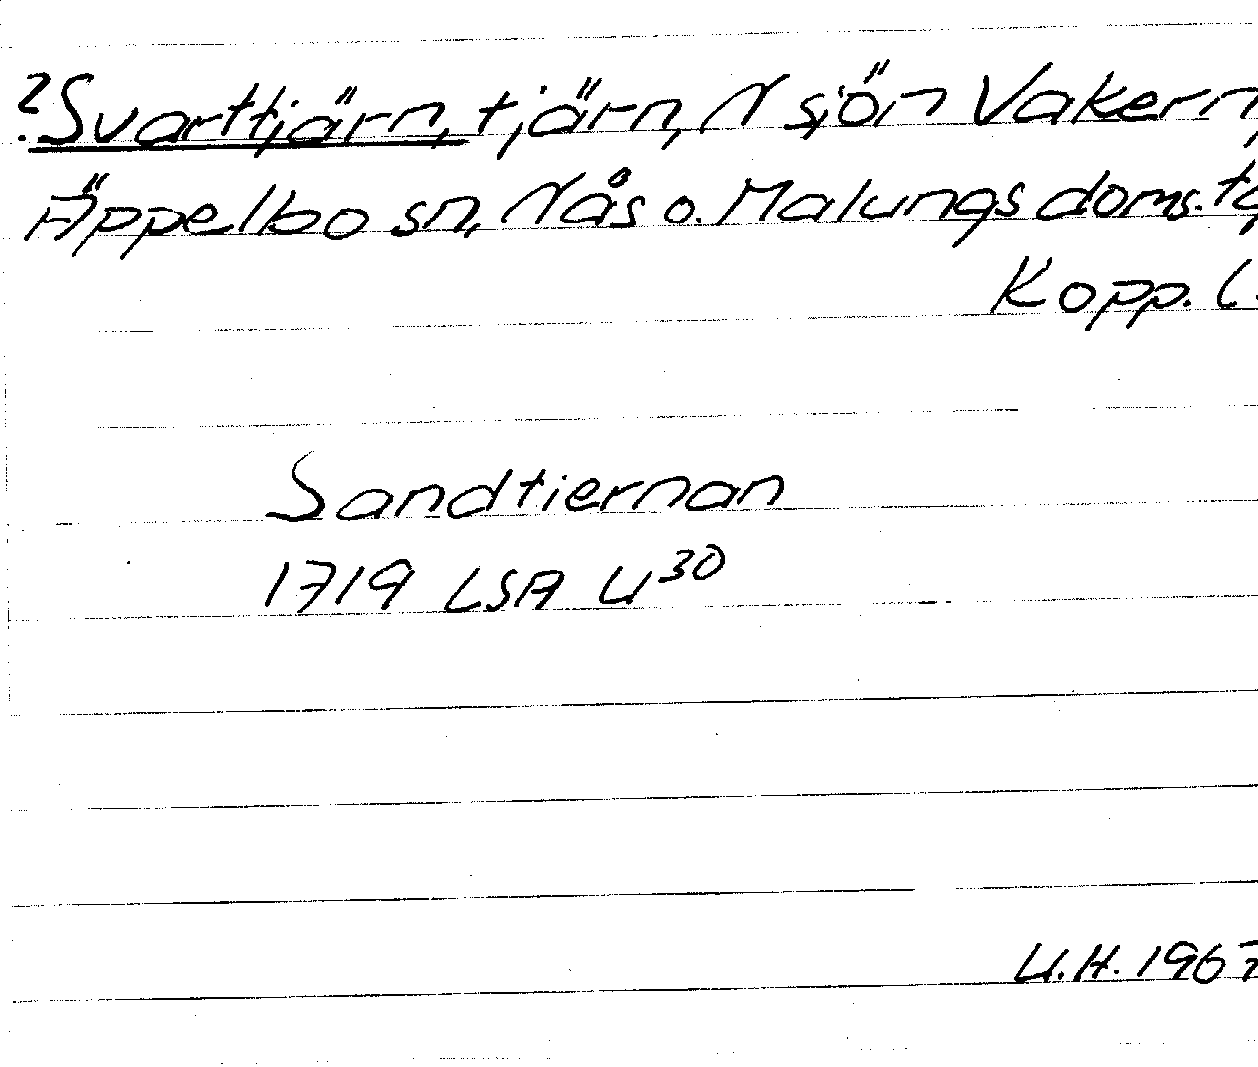 ?Svarttjärn, tjärn, N sjön Vakern,
Äppelbo sn, Nås o. Malungs doms.
Kopp. l.
Sandtiernan
1719 LSA U30
U.H. 1967